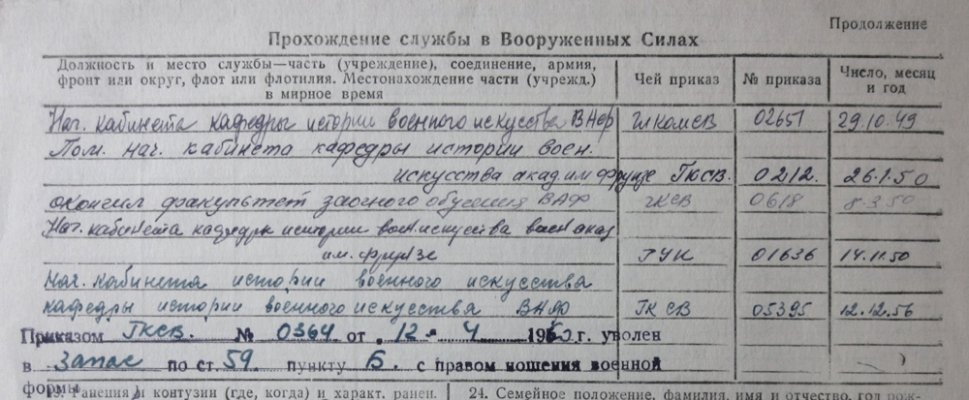 Продолжение
Прохождение службы в Вооруженных Силах
Должность и место службы—часть (учреждение), соединение, армия, фронт или округ, флот или флотилия. Местонахождение части (учрежд.) в мирное время
Чей приказ
№ приказа
Число, месяц и год
Нач. кабинета кафедры истории военного искусства ВАФ Глкомсв 02651 29.10.49
Пом. нач. кабинета кафедры истории воен.
искусства акад им Фрунзе ГКСВ. 0212. 26.1.50
окончил факультет заочного обучения ВАФ ГКСВ 0618 8.3.50
Нач. кабинета кафедры истории воен искусства воен акад
им. Фрунзе ГУК 01636 14.11.50
Нач. кабинета истории военного искусства
кафедры истории военного искусства ВАФ ГК СВ 05395 12.12.56
Приказом ГКСВ. № 0364 от 12 - 4 196 г. уволен
в Запас по ст. 59. пункту Б. с правом ношения военной
формы
Ранения и контузии (где, когда) и характ. ранен.
24. Семейное положение, фамилия, имя и отчество, год рож-